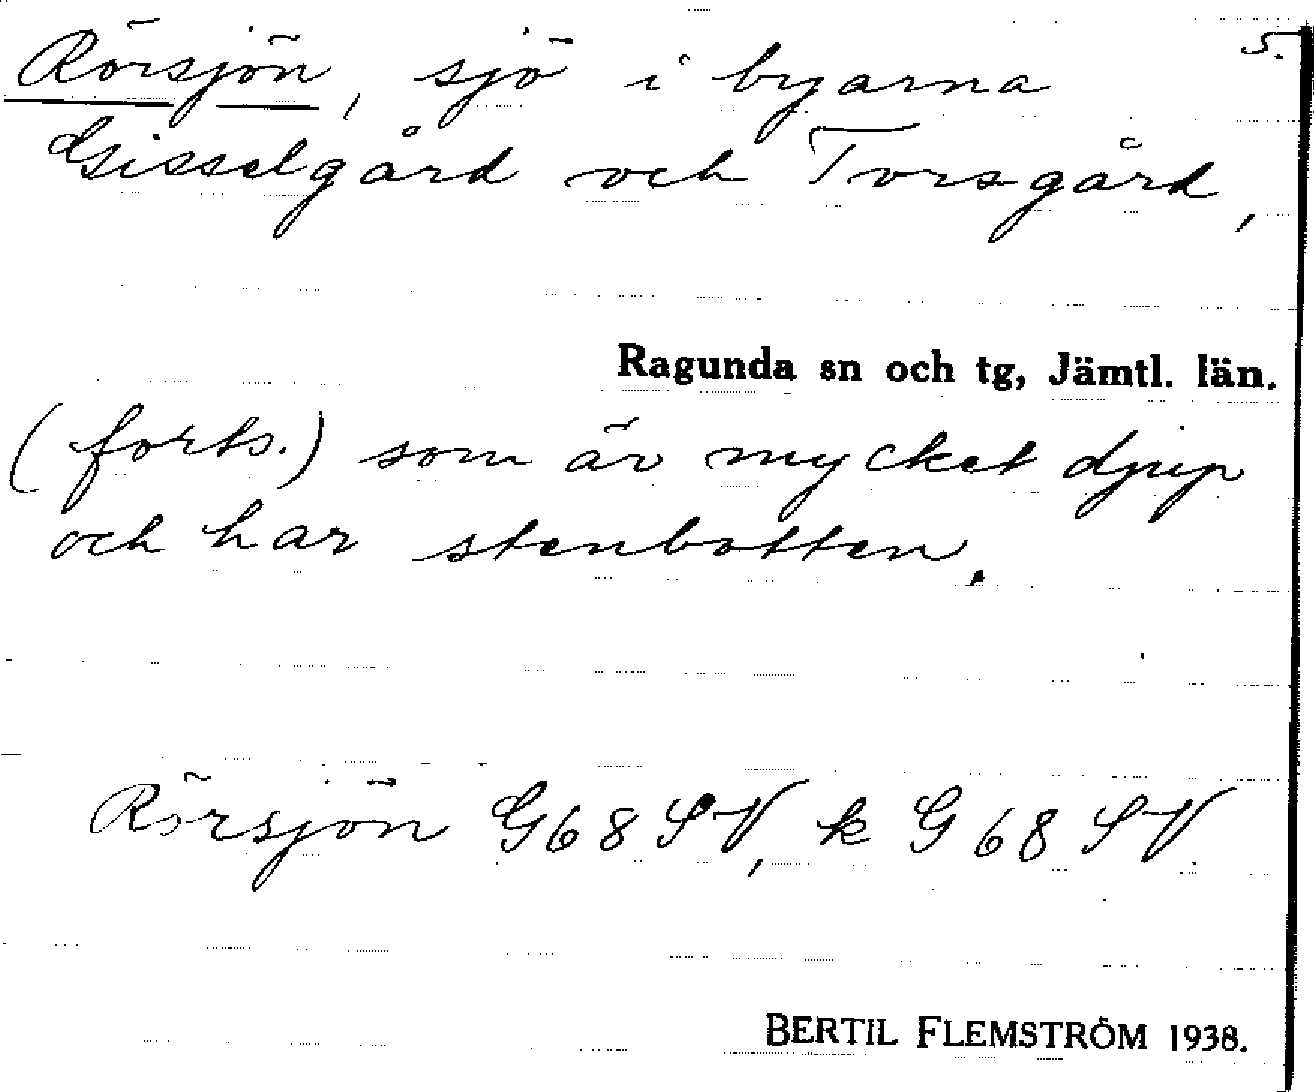 5.
Rörsjön, sjö i byarna
Gisselgård och Torsgård,
Ragunda sn och tg, Jämtl. län.
(forts.) som är mycket djup
och har stenbotten.
Rörsjön G68SV, k G68SV
BERTIL FLEMSTRÖM 1938.